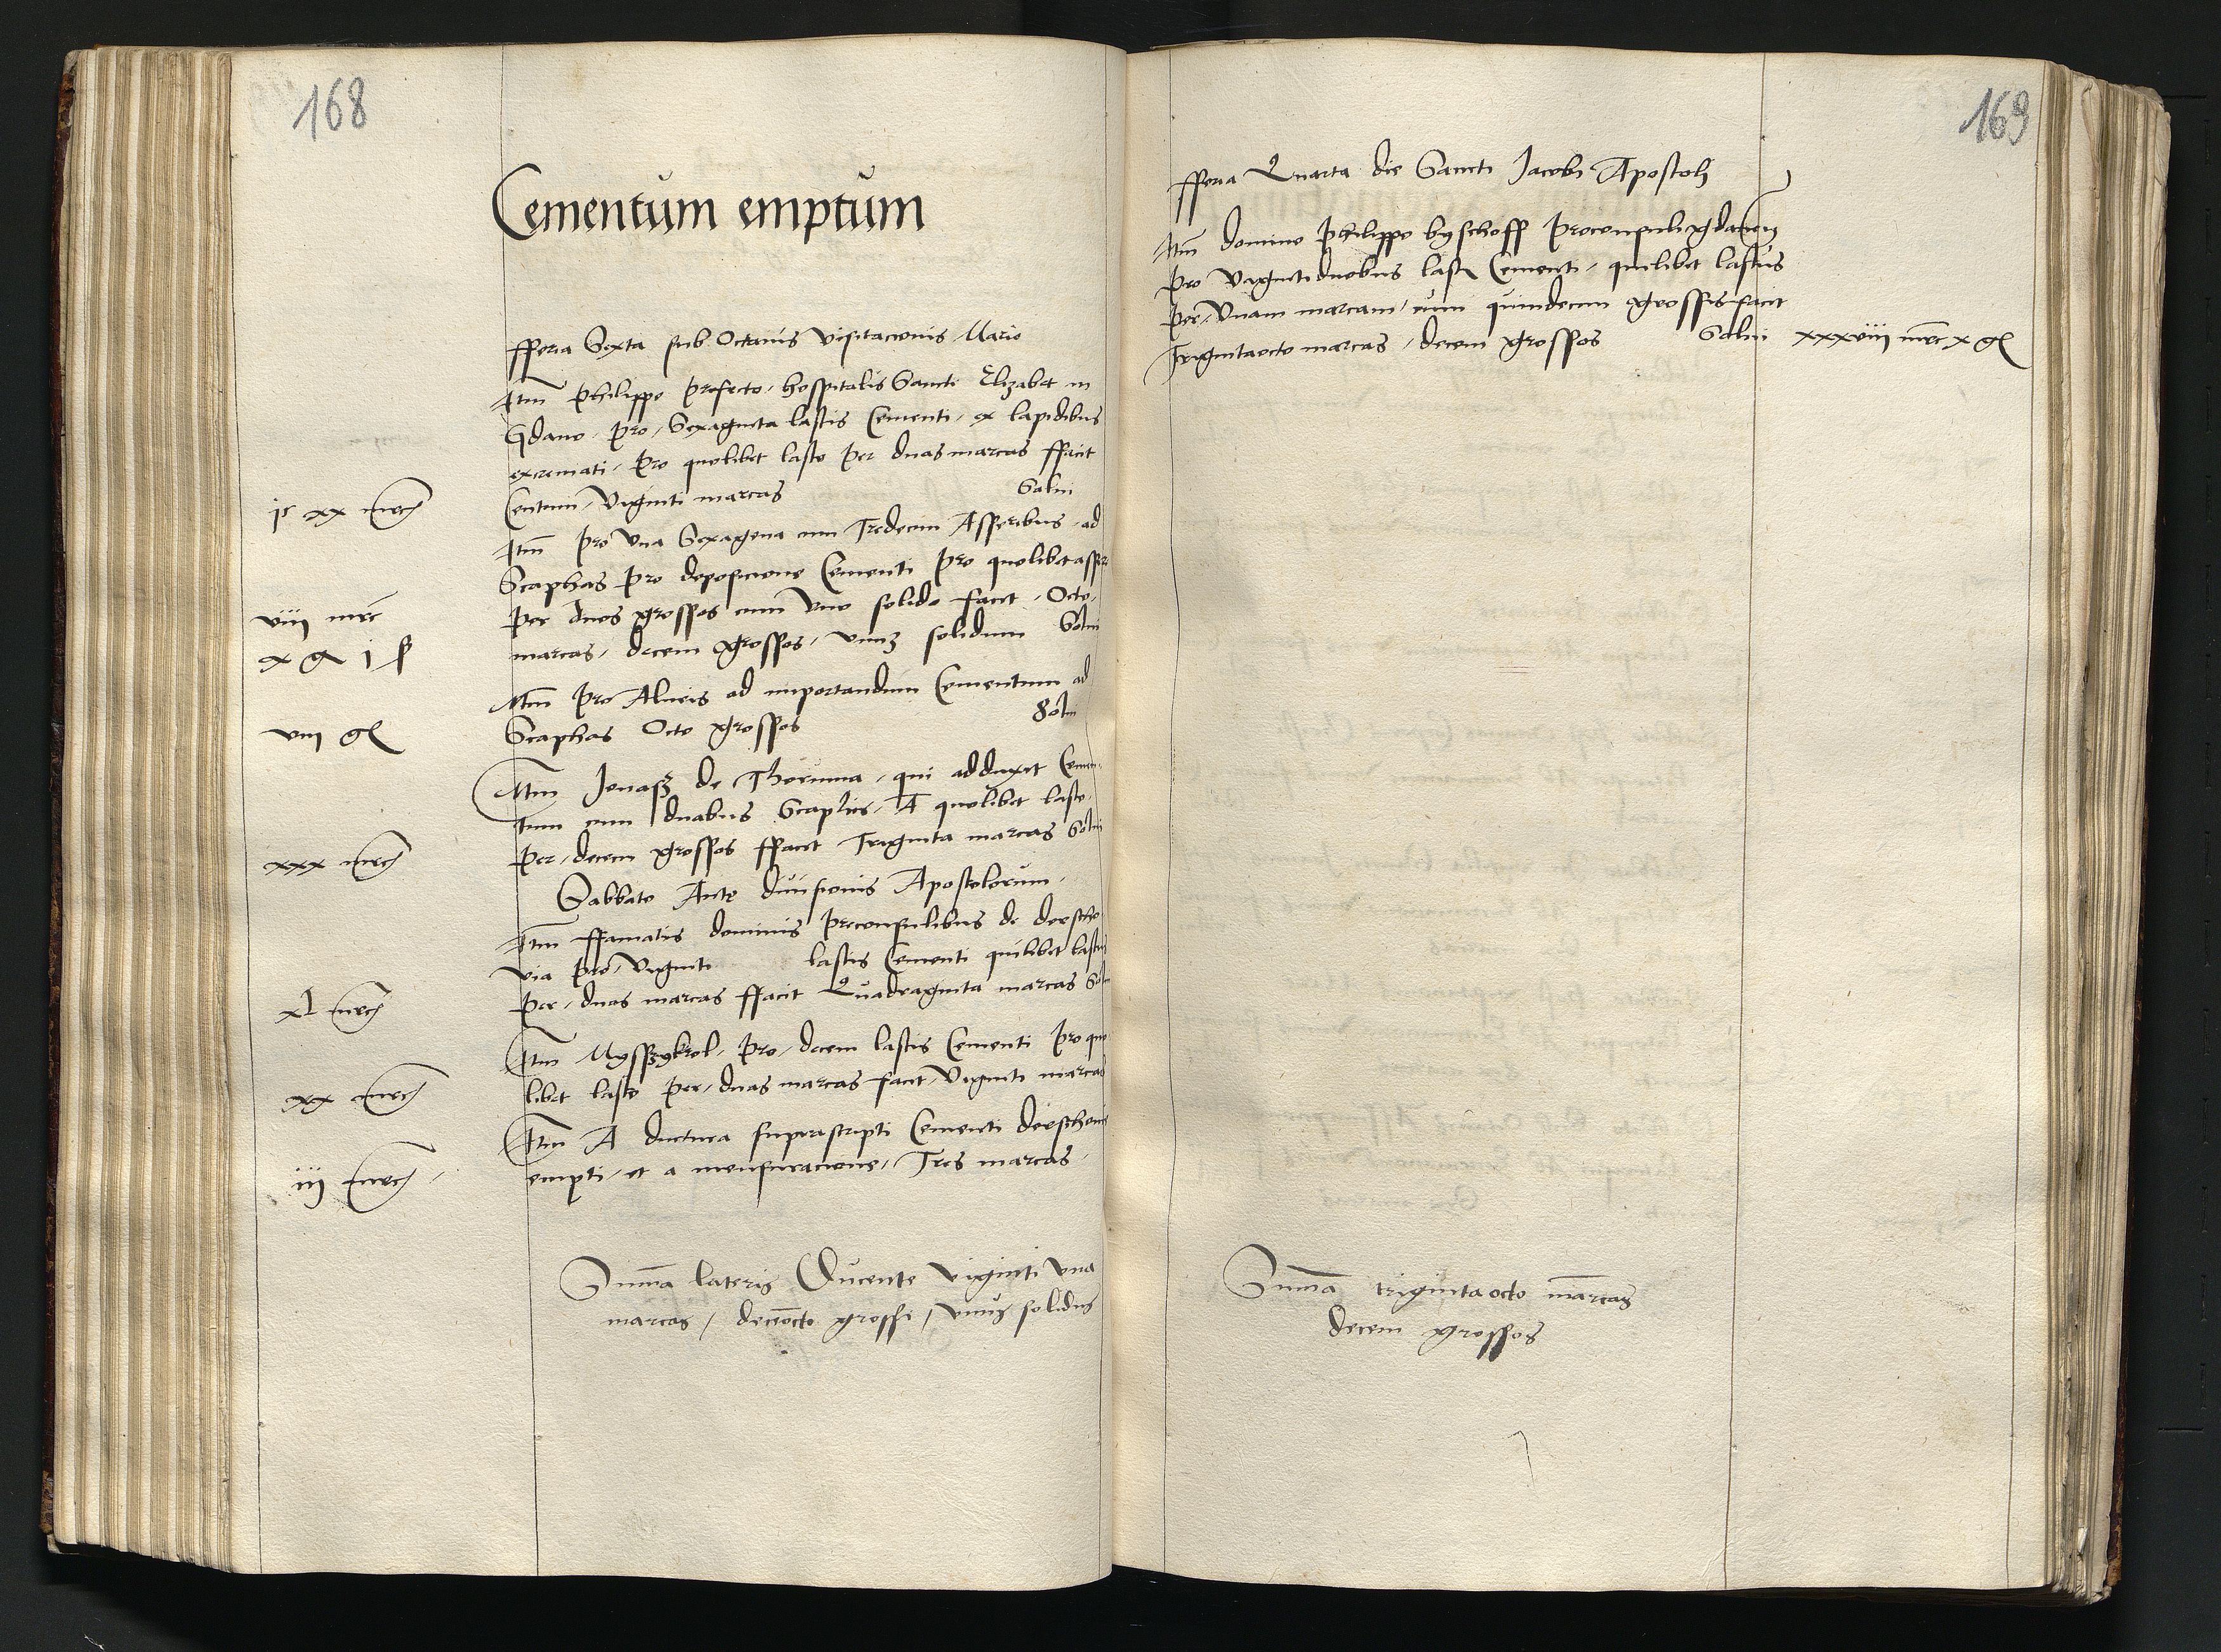 168
Cementum emptum
fferia Sexta sub Octavis visitacionis Marie
Itm Philippo prefecto hospitalis Sancti Elizabet in
Gdano pro Sexaginta lastis Cementi ex lapidibus
excremati pro quolibet lasto per duas marcas ffacit
Centum Viginti marcas Solui
jc xx mrc
Itm pro Una Sexagena cum Tredecim Asseribus ad
Scaphas pro deposicione Cementi pro quolibet assere
per duos grossos cum uno solido facit Octo
viij mrc
marcas decem grossos unum solidum Solui
x g j s
Itm pro Alueis ad importandum Cementum ad
Scaphas Octo grossos Solui
viij gs
Itm Jonasz de Thorunia qui adduxit Cemen
tum cum duabus Scaphis A quolibet lasto
per decem grossos ffacit Triginta marcas Solui
xxx mrc
Sabbato Ante divisionis Apostolorum
Itm ffamatis dominis proconsulibus de derscho
via pro Viginti lastis Cementi quilibet lastus
per duas marcas ffacit Quadraginta marcas Solui
xl mrc
Itm Mysszykrol pro decem lastis Cementi pro quo
libet lasto per duas marcas facit Viginti marcas
xx mrc
Itm A ductura suprascripti Cementi derschouie
empti et a mensuracione Tres marcas
iij mrc
Summa lateris Ducente viginti una
marcas decemocto grossi unus solidus
169
fferia Quarta die Sancti Jacobi Apostoli
Itm domino Philippo byschoff proconsuli gdanen
pro Vigintiduobus last Cementi quilibet lastus
per Unam marcam cum quindecim grossis facit
Trigintaocto marcas decem grossos Solui xxxviij mrc x gs
Summa trigintaocto marcas
decem grossos